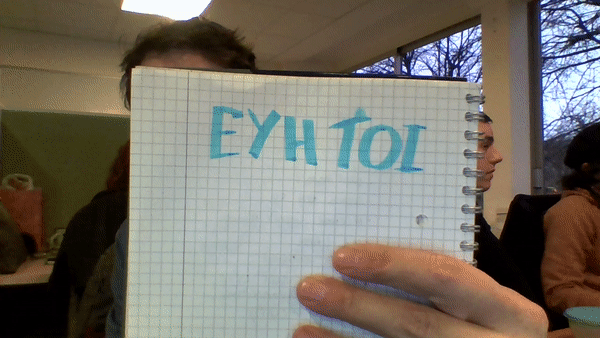 EYH TOI